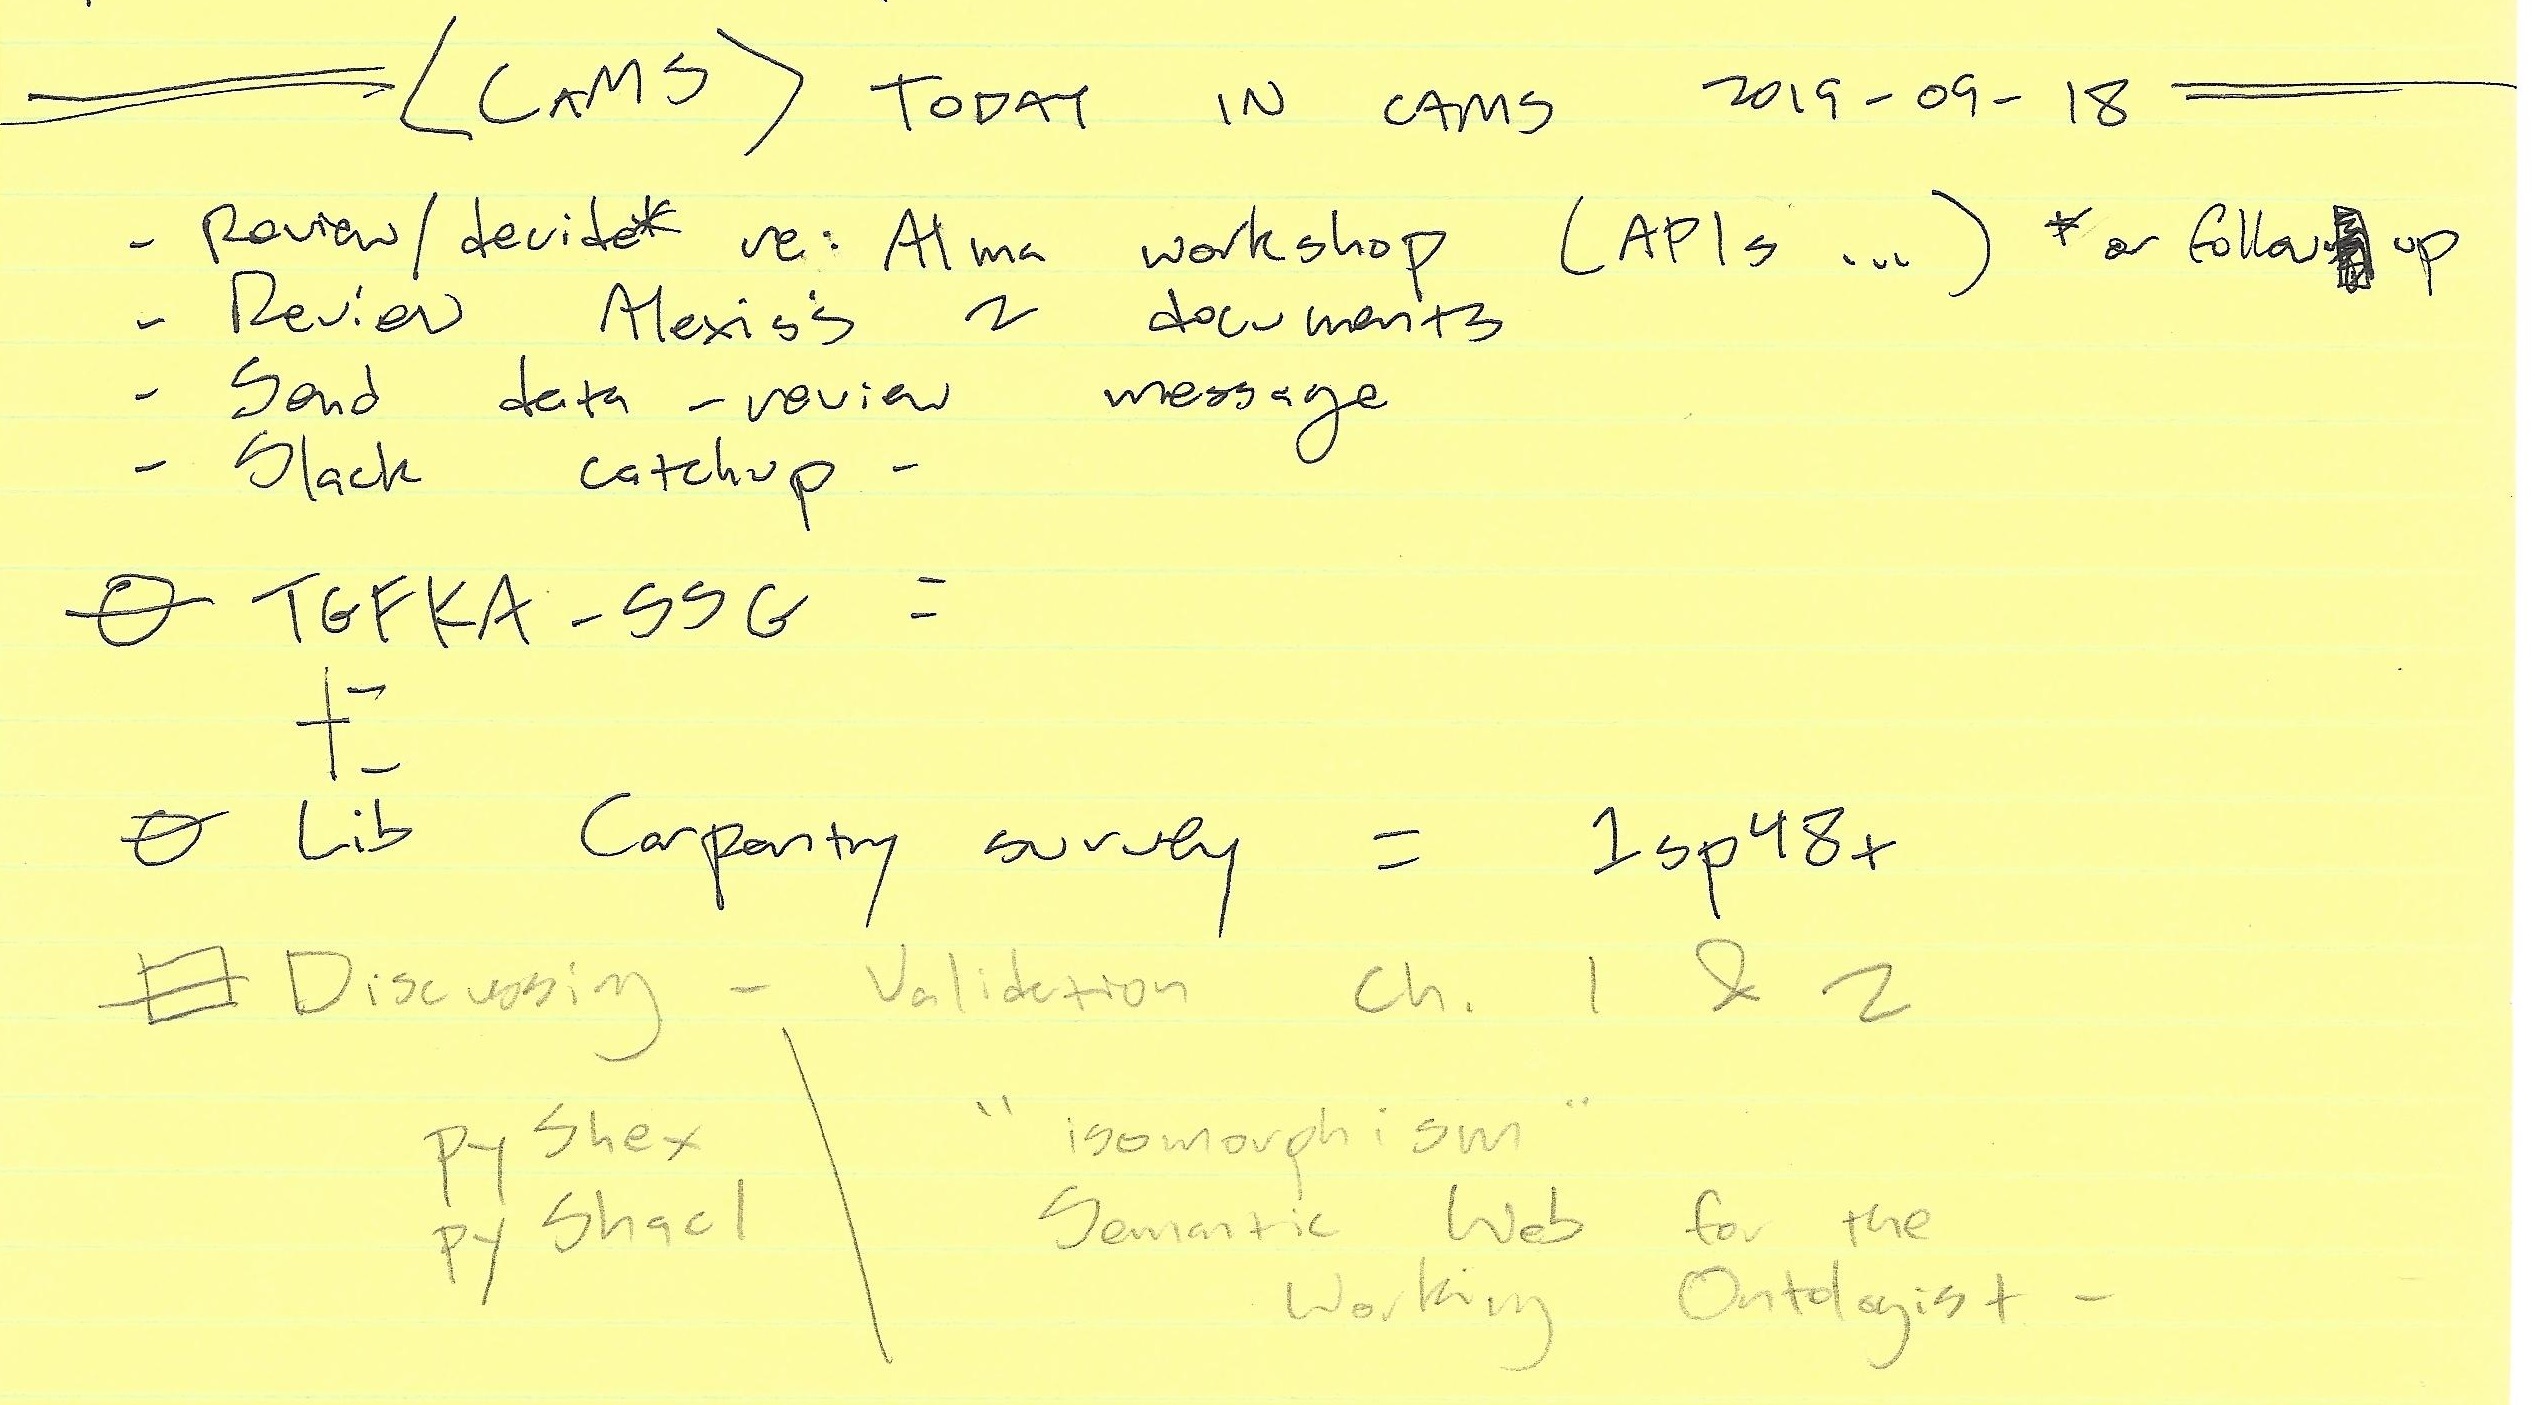 ⟨CAMS⟩ TODAY IN CAMS 2019-09-18
- Review/decide* re: Alma workshop (APIs ...) * or follow up
- Review Alexis's 2 documents
- Send data-review message
- Slack catchup -
TGFKA-SSG =
Lib Carpentry survey = 1sp48x
Discussing - Validation Ch. 1 & 2
pyShex
pyShacl
"isomorphism"
Semantic Web for the
Working Ontologist -